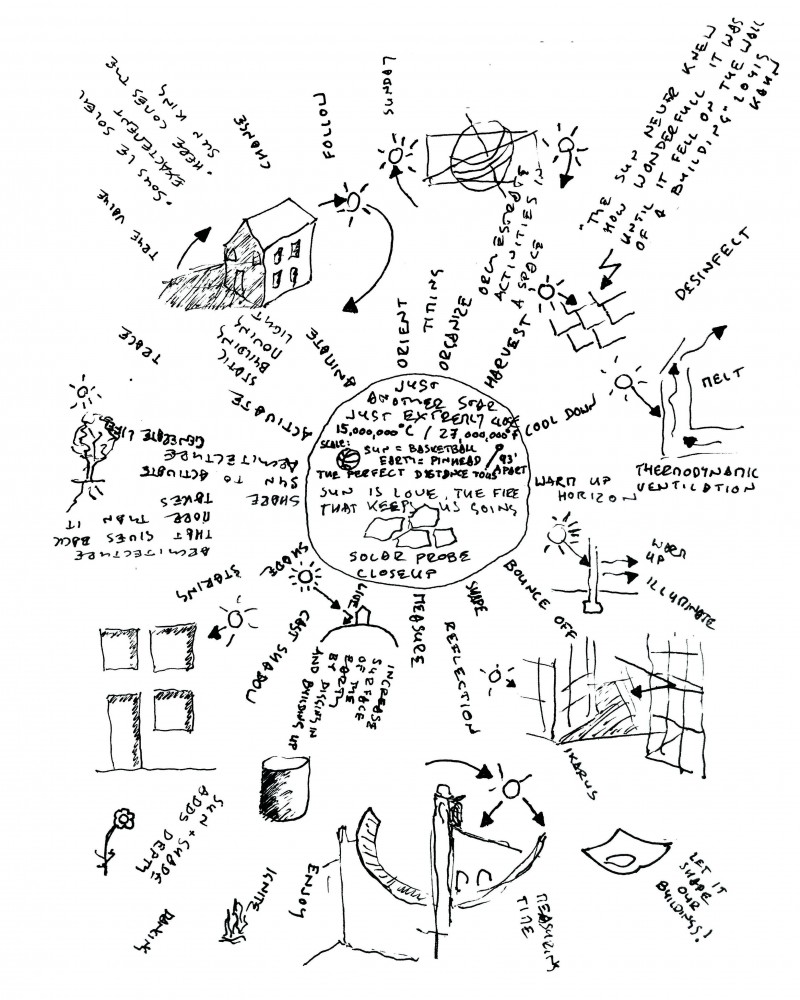 JUST
ANOTHER STAR
JUST EXTREMLY CLOSE
15,000,000°C / 27,000,000°F
SCALE:
SUN = BASKETBALL
EARTH = PINHEAD
93'
APART
THE PERFECT DISTANCE TO US
SUN IS LOVE, THE FIRE
THAT KEEPS US GOING
SOLAR PROBE
CLOSEUP
ORIENT
TIMING
ORGANIZE
ORCHESTRATE
ACTIVITIES IN
A SPACE
HARVEST
"THE SUN NEVER KNEW
HOW WONDERFULL IT WAS
UNTIL IT FELL ON THE WALL
OF A BUILDING" LOUIS
KAHN
DESINFECT
MELT
COOL DOWN
THERMODYNAMIC
VENTILATION
WARM UP
HORIZON
WARM
UP
ILLUMINATE
BOUNCE OFF
IKARUS
SHAPE
REFLECTION
LET IT
SHAPE
OUR
BUILDINGS!
MEASURE
MEASURING
TIME
LIVE
INCREASE
SURFACE
OF THE
EARTH
BY DIGGING IN
AND BUILDING UP
ENJOY
IGNITE
CAST SHADOW
SHADE
STARING
SUN + SHADE
ADDS DEPTH
SHARE
SUN TO ACTIVATE
ARCHITECTURE
GENERATE LIFE
ARCHITECTURE
THAT GIVES BACK
MORE THAN IT
TAKES
ACTIVATE
TRACE
ANIMATE
STATIC
BUILDING
MOVING
LIGHT
TRUE VALUE
• SOUS LE SOLEIL
EXACTEMENT
• HERE COMES THE
SUN KING
CHANGE
FOLLOW
SUNDAY